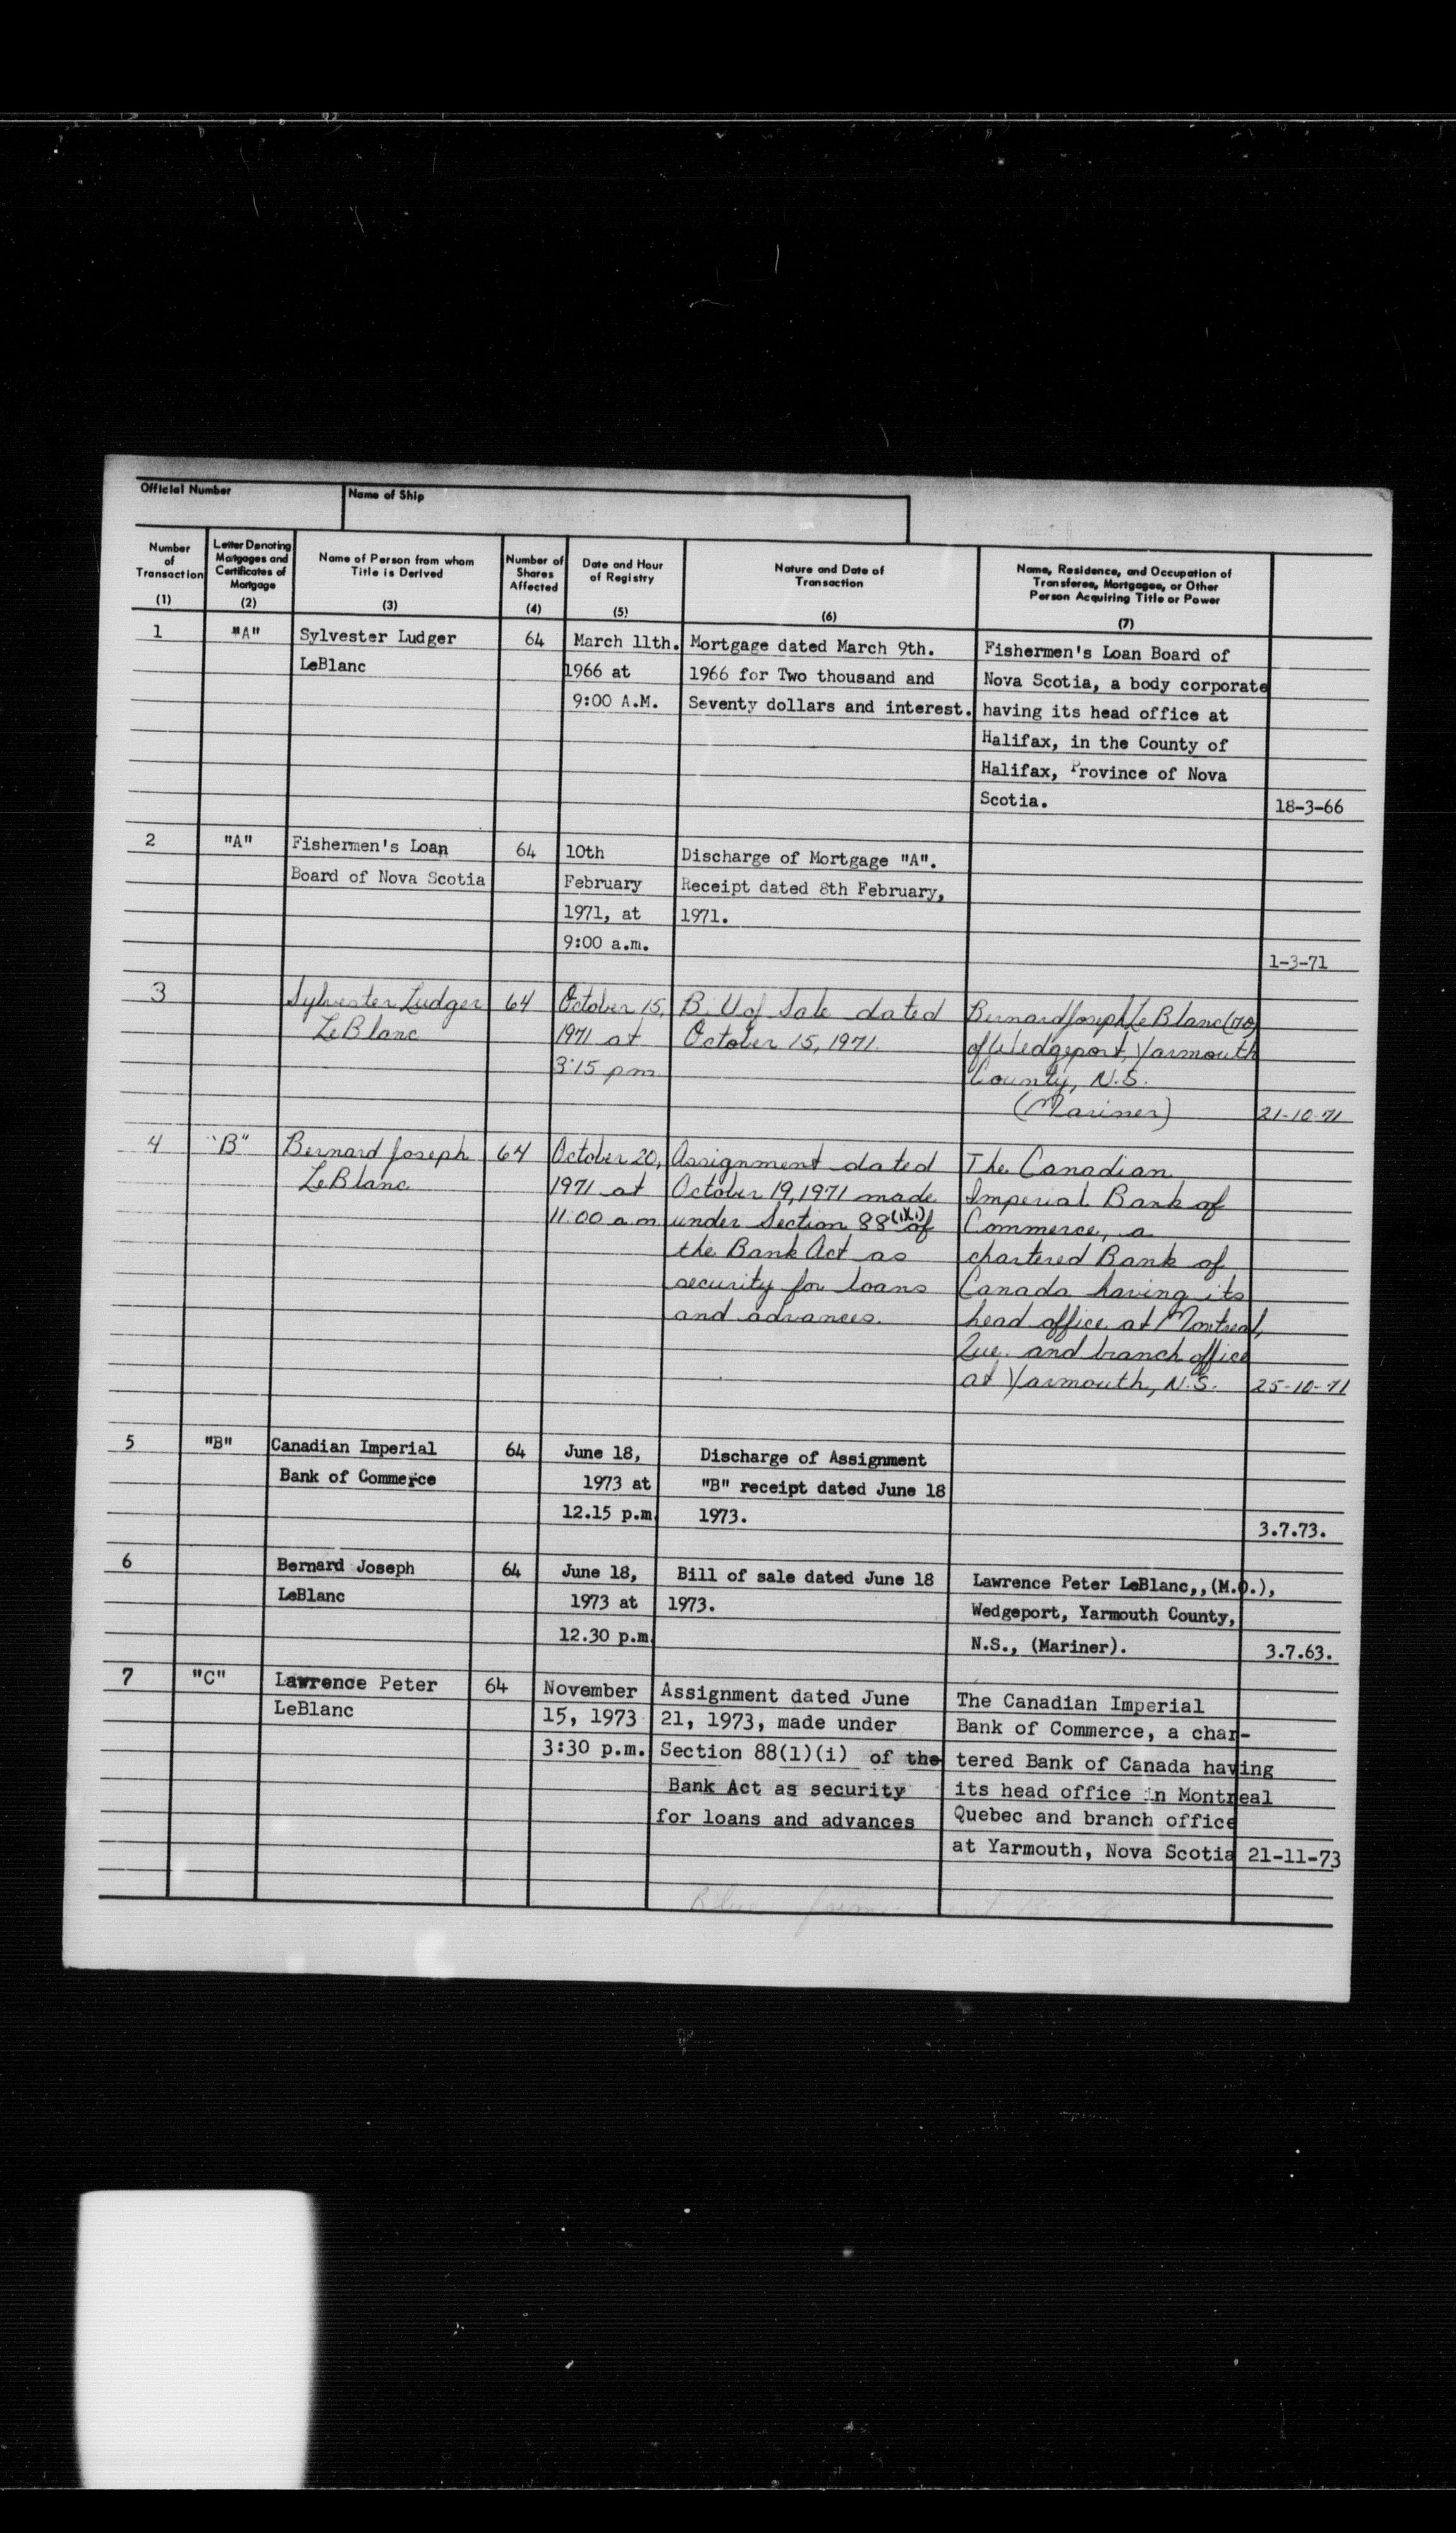 Official Number
Name of Ship
Number of Transaction (1)
Letter Denoting Mortgages and Certificates of Mortgage (2)
Name of Person from whom Title is Derived (3)
Number of Shares Affected (4)
Date and Hour of Registry (5)
Nature and Date of Transaction (6)
Name, Residence, and Occupation of Transferee, Mortgagee, or Other Person Acquiring Title or Power (7)
1 "A" Sylvester Ludger 64 March 11th. Mortgage dated March 9th. Fishermen's Loan Board of
LeBlanc 1966 at 1966 for Two thousand and Nova Scotia, a body corporate
9:00 A.M. Seventy dollars and interest. having its head office at
Halifax, in the County of
Halifax, Province of Nova
Scotia. 18-3-66
2 "A" Fishermen's Loan 64 10th Discharge of Mortgage "A".
Board of Nova Scotia February Receipt dated 8th February,
1971, at 1971.
9:00 a.m.
1-3-71
3 Sylvester Ludger 64 October 15, Bill of Sale dated Bernard Joseph LeBlanc
LeBlanc 1971 at October 15, 1971. of Wedgeport, Yarmouth
3:15 pm County, N.S.
(Mariner) 21-10-71
4 "B" Bernard Joseph 64 October 20, Assignment dated The Canadian
LeBlanc 1971 at October 19, 1971 made Imperial Bank of
11:00 a.m under Section 88(1)(i) of Commerce, a
the Bank Act as chartered Bank of
security for loans Canada having its
and advances. head office at Montreal,
Que. and branch office
at Yarmouth, N.S. 25-10-71
5 "B" Canadian Imperial 64 June 18, Discharge of Assignment
Bank of Commerce 1973 at "B" receipt dated June 18
12.15 p.m. 1973.
3.7.73.
6 Bernard Joseph 64 June 18, Bill of sale dated June 18 Lawrence Peter LeBlanc,,(M.O.),
LeBlanc 1973 at 1973. Wedgeport, Yarmouth County,
12.30 p.m. N.S., (Mariner). 3.7.63.
7 "C" Lawrence Peter 64 November Assignment dated June The Canadian Imperial
LeBlanc 15, 1973 21, 1973, made under Bank of Commerce, a char-
3:30 p.m. Section 88(1)(i) of the tered Bank of Canada having
Bank Act as security its head office in Montreal
for loans and advances Quebec and branch office
at Yarmouth, Nova Scotia 21-11-73